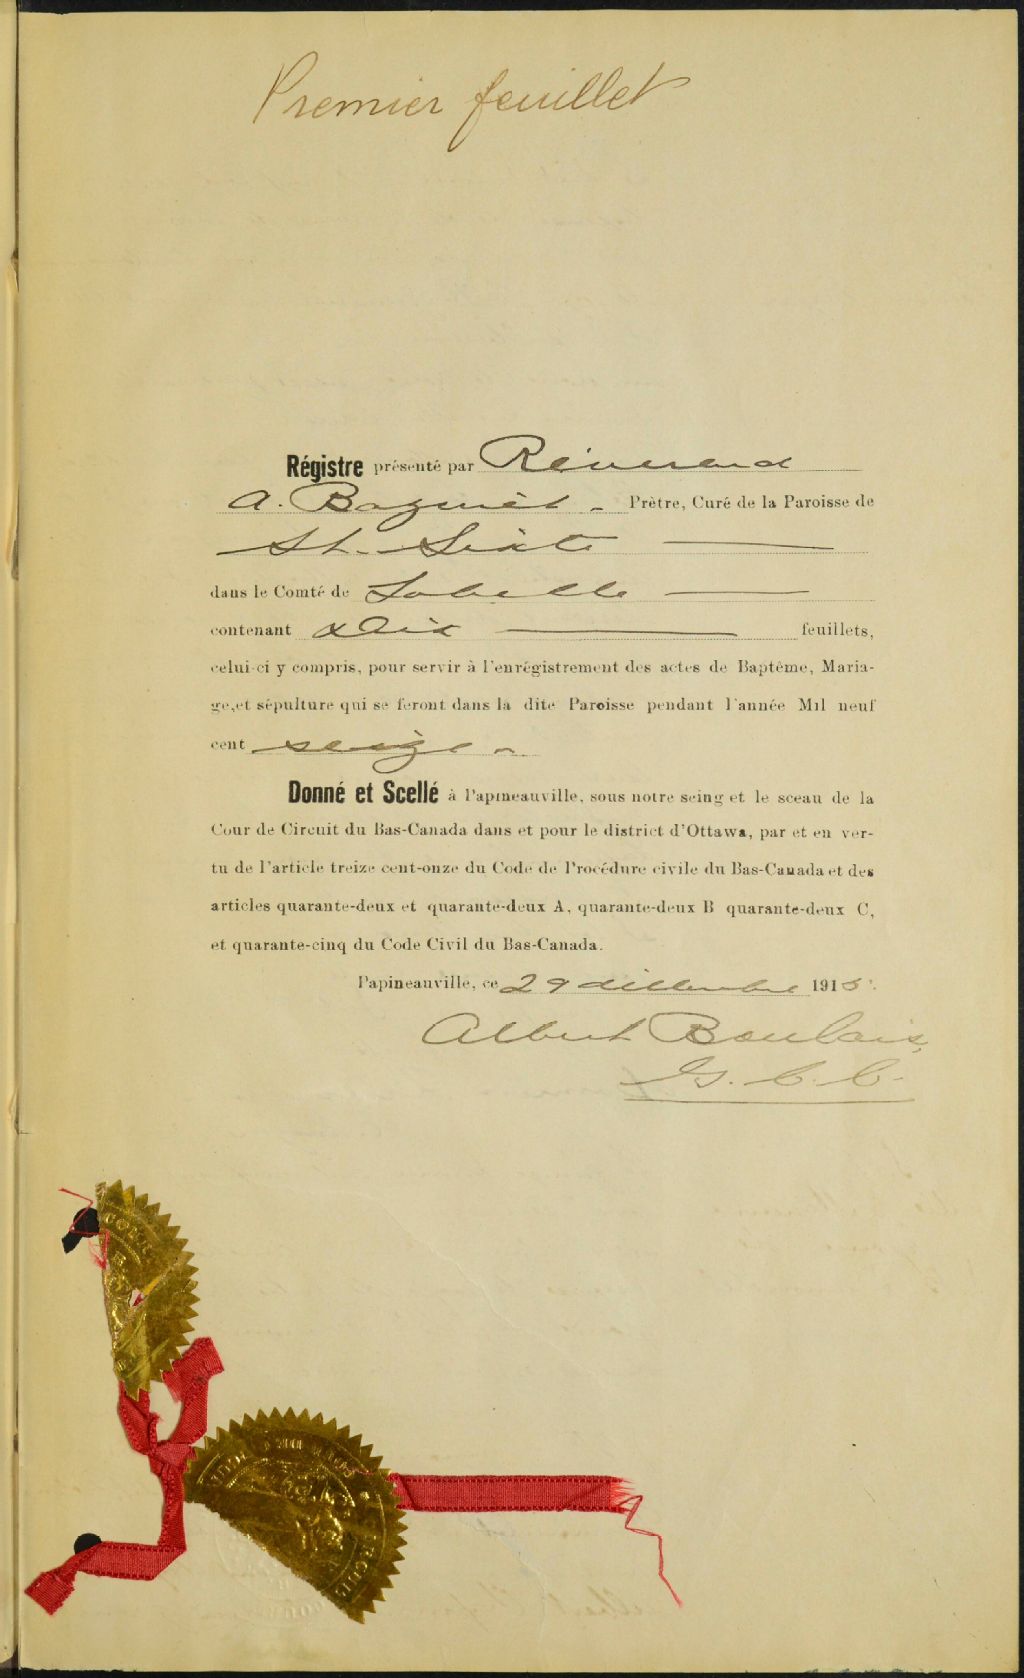 Premier feuillet
Régistre présenté par Révérend
A. Bazinet. Prètre, Curé de la Paroisse de
St. Sixte
dans le Comté de Labelle
contenant Dix feuillets,
celui-ci y compris, pour servir à l'enrégistrement des actes de Baptême, Maria-
ge,et sépulture qui se feront dans la dite Paroisse pendant l'année Mil neuf
cent seize.
Donné et Scellé à Papineauville, sous notre seing et le sceau de la
Cour de Circuit du Bas-Canada dans et pour le district d'Ottawa, par et en ver-
tu de l'article treize cent-onze du Code de Procédure civile du Bas-Canada et des
articles quarante-deux et quarante-deux A, quarante-deux B quarante-deux C,
et quarante-cinq du Code Civil du Bas-Canada.
Papineauville, ce 29 décembre 1915.
Albert
G. C. C.